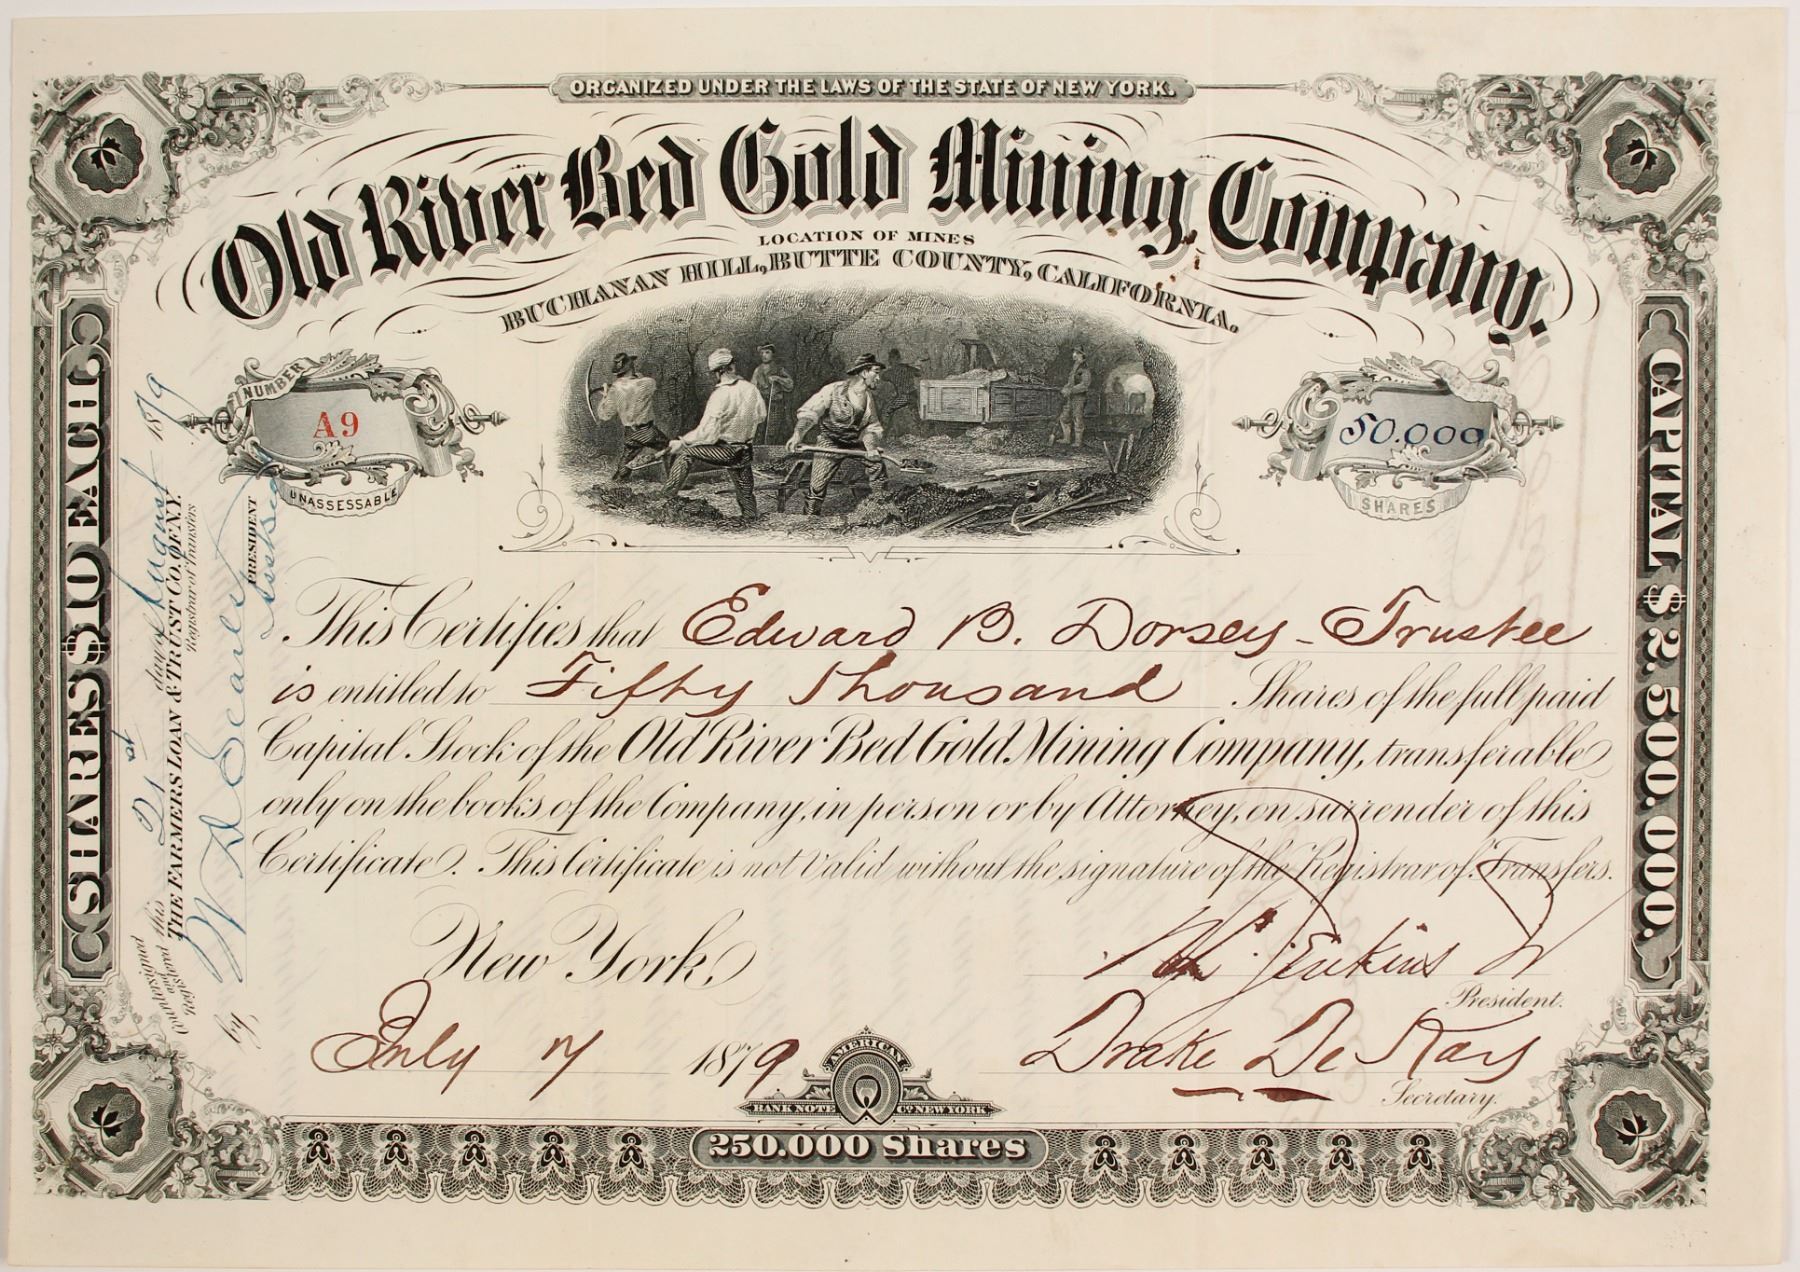 ORGANIZED UNDER THE LAWS OF THE STATE OF NEW YORK.
Old River Bed Gold Mining Company.
LOCATION OF MINES
BUCHANAN HILL, BUTTE COUNTY, CALIFORNIA.
NUMBER
A9
UNASSESSABLE
50.000
SHARES
SHARES $10 EACH
CAPITAL $2.500.000.
Countersigned and Registered this 21st day of August 1879
THE FARMERS LOAN & TRUST CO. OF N.Y.
Registrar of Transfers
by W D Searls
PRESIDENT
This Certifies that Edward B. Dorsey - Trustee
is entitled to Fifty Thousand Shares of the full paid
Capital Stock of the Old River Bed Gold Mining Company, transferable
only on the books of the Company, in person or by Attorney, on surrender of this
Certificate. This Certificate is not valid without the signature of the Registrar of Transfers.
New York,
July 7 1879
Jenkins Jr
President.
Drake De Kay
Secretary.
AMERICAN
BANK NOTE CO. NEW YORK
250.000 Shares